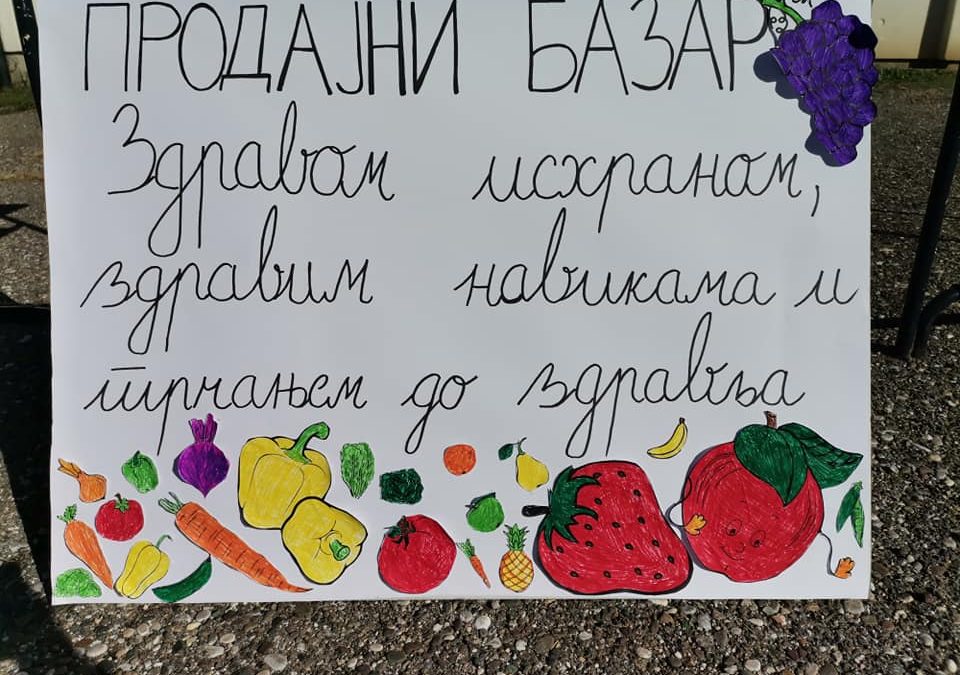 ПРОДАЈНИ БАЗАР
Здравом исхраном,
здравим навикама и
трчањем до здравља